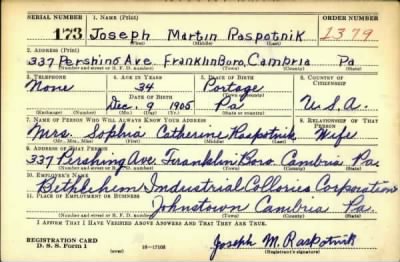 SERIAL NUMBER 1. NAME (Print) ORDER NUMBER
173 Joseph Martin Raspotnik 1379
(First) (Middle) (Last)
2. ADDRESS (Print)
337 Pershing Ave. Franklin Boro, Cambria Pa
(Number and street or R. F. D. number) (Town) (County) (State)
3. TELEPHONE 4. AGE IN YEARS 5. PLACE OF BIRTH 6. COUNTRY OF CITIZENSHIP
None 34 Portage
(Town or county)
DATE OF BIRTH
Dec. 9 1905 Pa U.S.A.
(Exchange) (Number) (Mo.) (Day) (Yr.) (State or country)
7. NAME OF PERSON WHO WILL ALWAYS KNOW YOUR ADDRESS 8. RELATIONSHIP OF THAT PERSON
Mrs. Sophia Catherine Raspotnik Wife
(Mr., Mrs., Miss) (First) (Middle) (Last)
9. ADDRESS OF THAT PERSON
337 Pershing Ave. Franklin Boro. Cambria Pa.
(Number and street or R. F. D. number) (Town) (County) (State)
10. EMPLOYER'S NAME
Bethlehem Industrial Collories Corporation
11. PLACE OF EMPLOYMENT OR BUSINESS
Johnstown Cambria Pa.
(Number and street or R. F. D. number) (Town) (County) (State)
I AFFIRM THAT I HAVE VERIFIED ABOVE ANSWERS AND THAT THEY ARE TRUE.
REGISTRATION CARD
D. S. S. Form 1 (over) 16—17105
Joseph M. Raspotnik
(Registrant's signature)